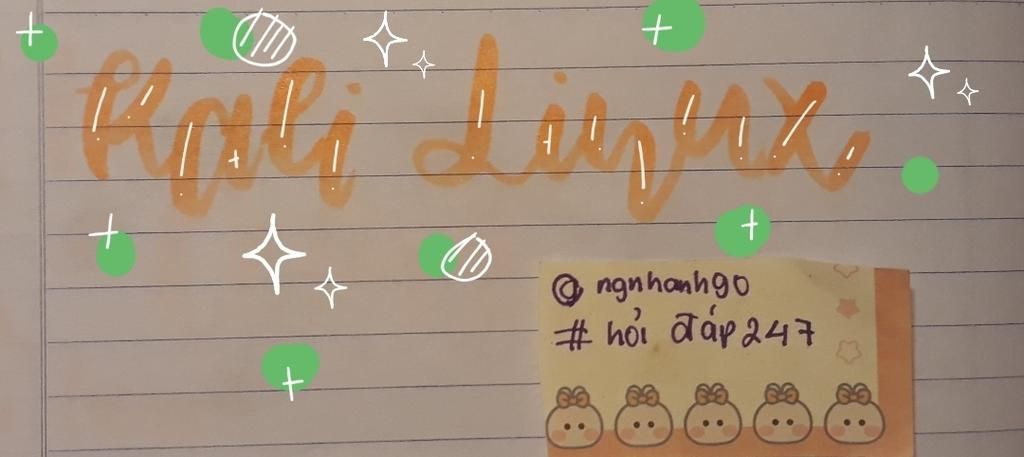 Kali Linux
@ngnhanh90
# hỏi đáp247